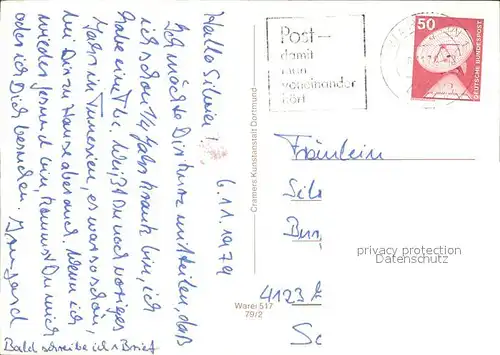 6.11.1979
Hallo Silvia!
Ich möchte Dir kurz mitteilen, daß
ich schon ¼ Jahr krank bin, ich
habe eine Tbc. Weißt Du noch voriges
Jahr in Tunesien, es war so schön,
bei Dir zu Hause aber auch. Wenn ich
wieder gesund bin, kommst Du mich
oder ich Dich besuchen.
Bald schreibe ich 1 Brief
Cramers Kunstanstalt Dortmund
Warei 517
79/2
Post-
damit
man
voneinander
hört
50
DEUTSCHE BUNDESPOST
Fräulein
Sil
Bur
4123
Sc
privacy protection
Datenschutz